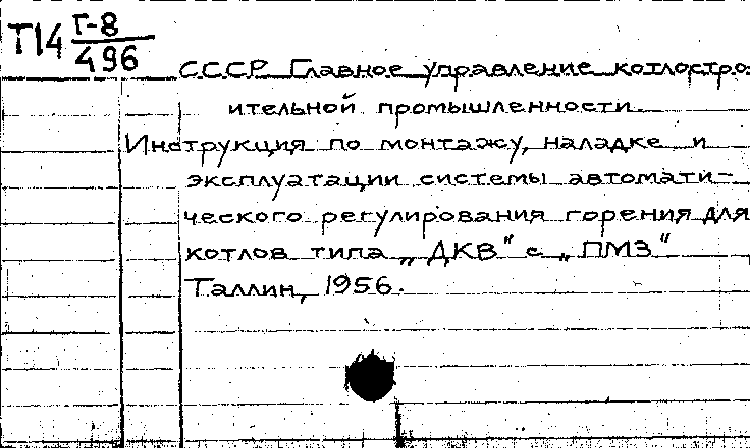 Т14 Г-8
496
СССР Главное управление котлостро
ительной промышленности.
Инструкция по монтажу, наладке и
эксплуатации системы автомати-
ческого регулирования горения для
котлов типа „ДКВ" с „ПМЗ"
Таллин, 1956.